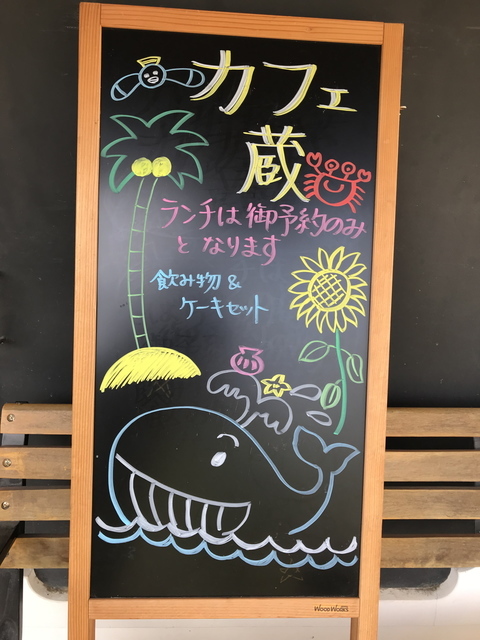 カフェ
蔵
ランチは御予約のみ
となります
飲み物 &
ケーキセット
WOOD WORKS